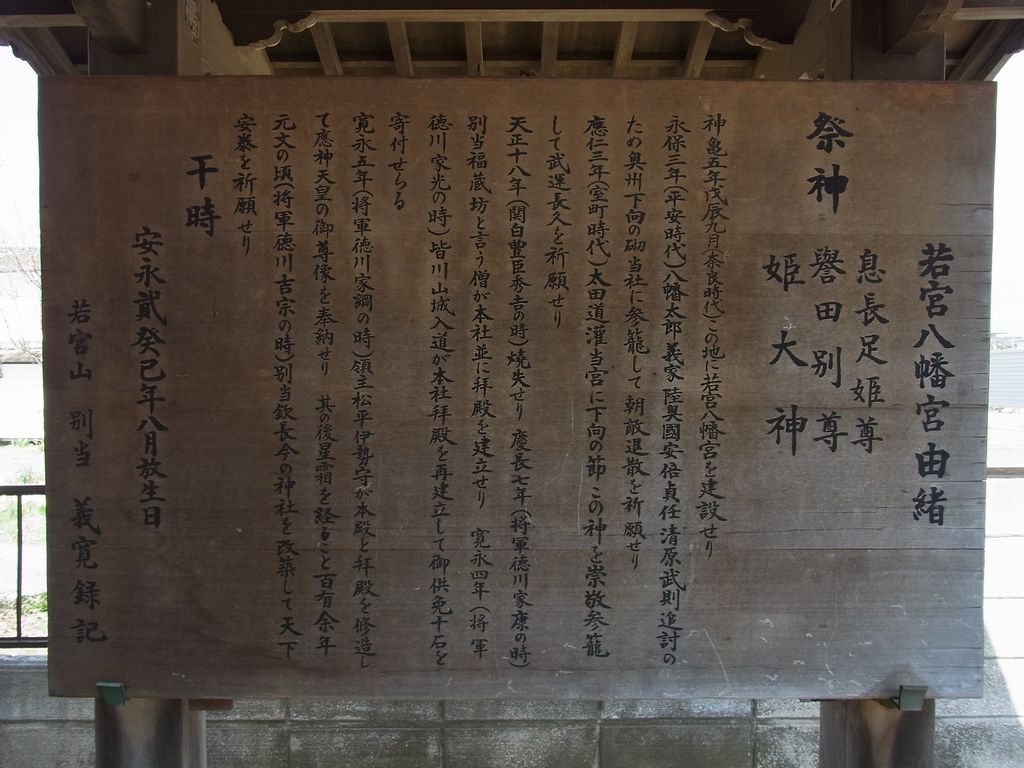 若宮八幡宮由緒
祭神
息長足姫尊
譽田別尊
姫大神
神亀五年戊辰九月(奈良時代)この地に若宮八幡宮を建設せり
永保三年(平安時代)八幡太郎義家陸奥國安倍貞任清原武則追討の
ため奥州下向の砌当社に参籠して朝敵退散を祈願せり
應仁三年(室町時代)太田道灌当宮に下向の節この神を崇敬参籠
して武運長久を祈願せり
天正十八年(関白豊臣秀吉の時)焼失せり 慶長七年(将軍徳川家康の時)
別当福蔵坊と言う僧が本社並に拝殿を建立せり 寛永四年(将軍
徳川家光の時)皆川山城入道が本社拝殿を再建立して御供免十石を
寄付せらる
寛永五年(将軍徳川家綱の時)領主松平伊勢守が本殿と拝殿を修造し
て應神天皇の御尊像を奉納せり 其の後星霜を経ること百有余年
元文の頃(将軍徳川吉宗の時)別当欽長今の神社を改築して天下
安泰を祈願せり
干時
安永貳癸巳年八月放生日
若宮山 別当 義寛録記